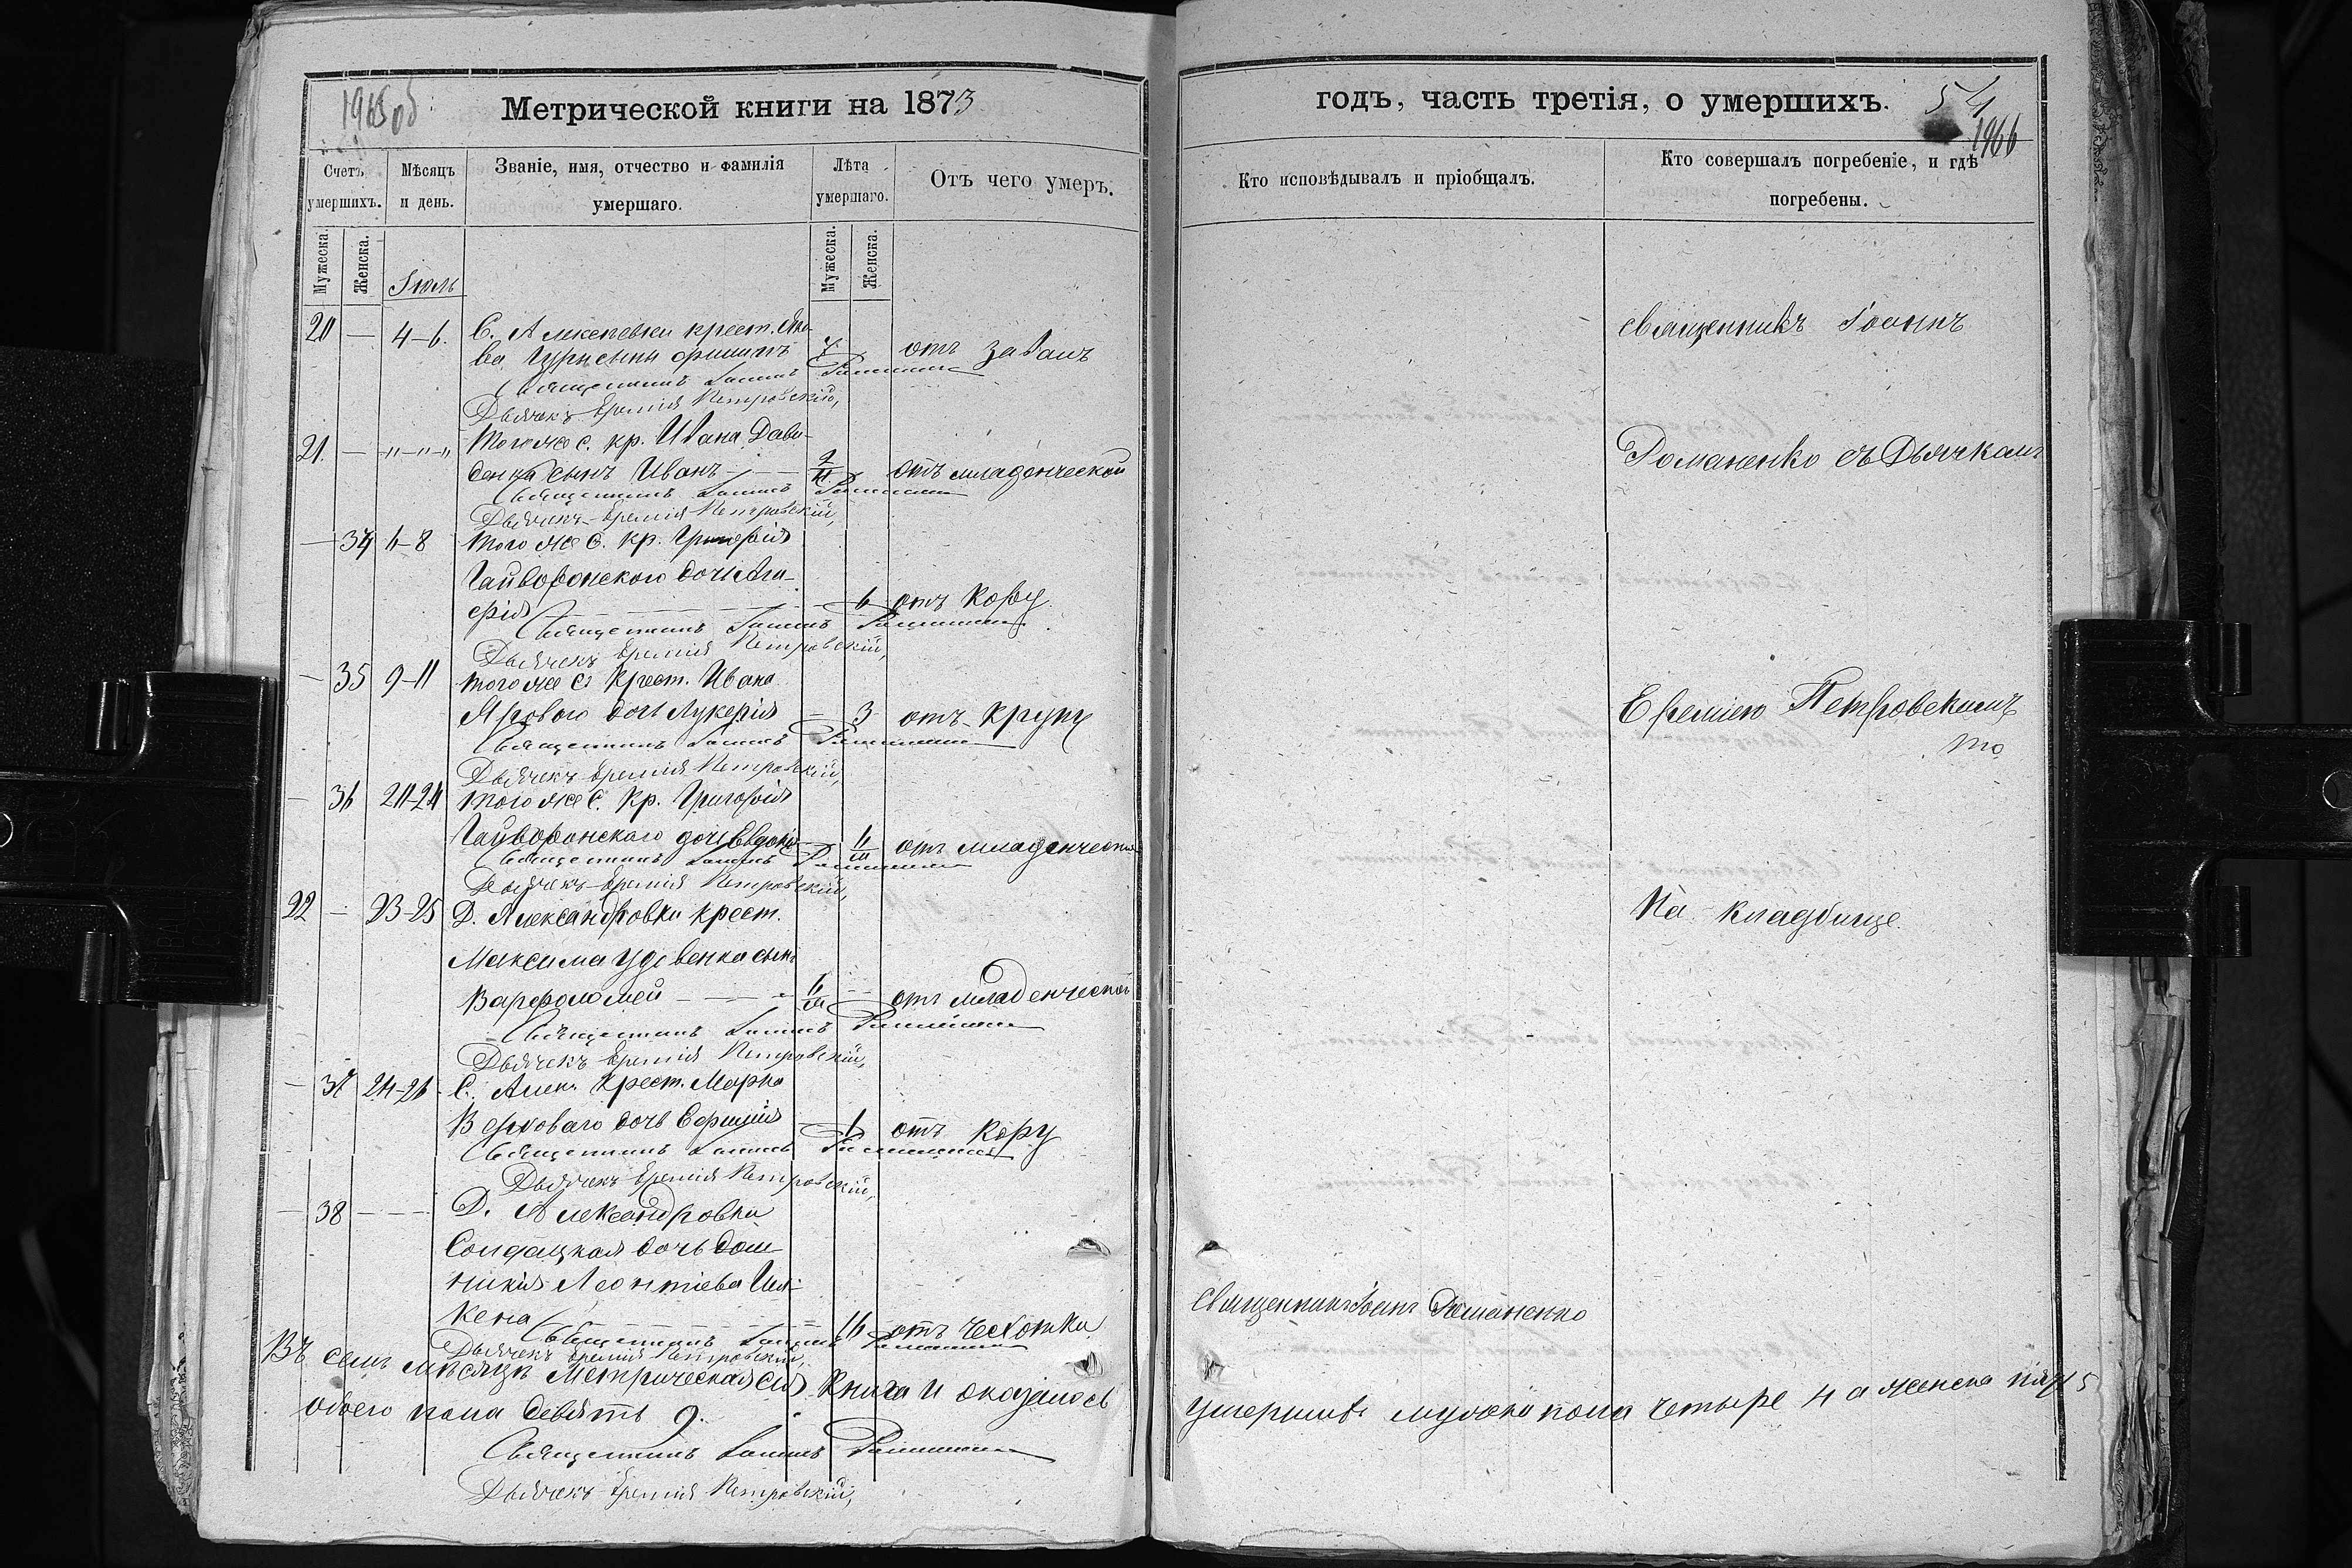 1965об
Метрической книги на 1873
Счетъ умершихъ.
Мѣсяцъ и день.
Званіе, имя, отчество и фамилія умершаго.
Лѣта умершаго.
Отъ чего умеръ.
Мужеска.
Женска.
Мужеска.
Женска.
Іюль
20 — 4-6. С. Алексѣевки крест.
сынъ
отъ
Священникъ Іоаннъ Романенко
Дьячекъ Еремія Петровскій,
21. — "—"—" Того же с. кр. Ивана Дави-
денка сынъ Иванъ — отъ младенческой
Священникъ Іоаннъ Романенко
Дьячекъ Еремія Петровскій,
— 34 6-8 Того же С. кр. Григорія
Гайворонскаго дочь
6 отъ кору
Священникъ Іоаннъ Романенко
Дьячекъ Еремія Петровскій,
— 35 9-11 того же С. Крест. Ивана
Яроваго дочь Лукерія — 3 отъ крупу
Священникъ Іоаннъ Романенко
Дьячекъ Еремія Петровскій,
— 36 того же С. Кр. Григорія
Гайворонскаго дочь Евдокія — отъ младенческой
Священникъ Іоаннъ Романенко
Дьячекъ Еремія Петровскій,
22 — 23-25 Д. Александровки крест.
Максима Удовенка сынъ
Варфоломей — отъ младенческой
Священникъ Іоаннъ Романенко
Дьячекъ Еремія Петровскій,
— 37 24-26 С. Алек. Крест. Марка
дочь — 1 отъ кору
Священникъ Іоаннъ Романенко
Дьячекъ Еремія Петровскій,
— 38 — — — Д. Александровки
Солдацкая дочь Дом-
никія Леонтіева
кена 16 отъ чесотки
Священникъ Іоаннъ Романенко
Дьячекъ Еремія Петровскій,
Въ семъ мѣсяцѣ Метрическая сія Книга и оказалось
обоего пола девять 9.
Священникъ Іоаннъ Романенко
Дьячекъ Еремія Петровскій,
годъ, часть третія, о умершихъ.
54
1966
Кто исповѣдывалъ и пріобщалъ.
Кто совершалъ погребеніе, и гдѣ погребены.
священникъ Іоаннъ
Романенко съ Дьячкомъ
Еремією Петровскимъ
то
На кладбище.
Священникъ Іоаннъ Романенко
умершихъ мужска пола четыре 4 а женска пять 5